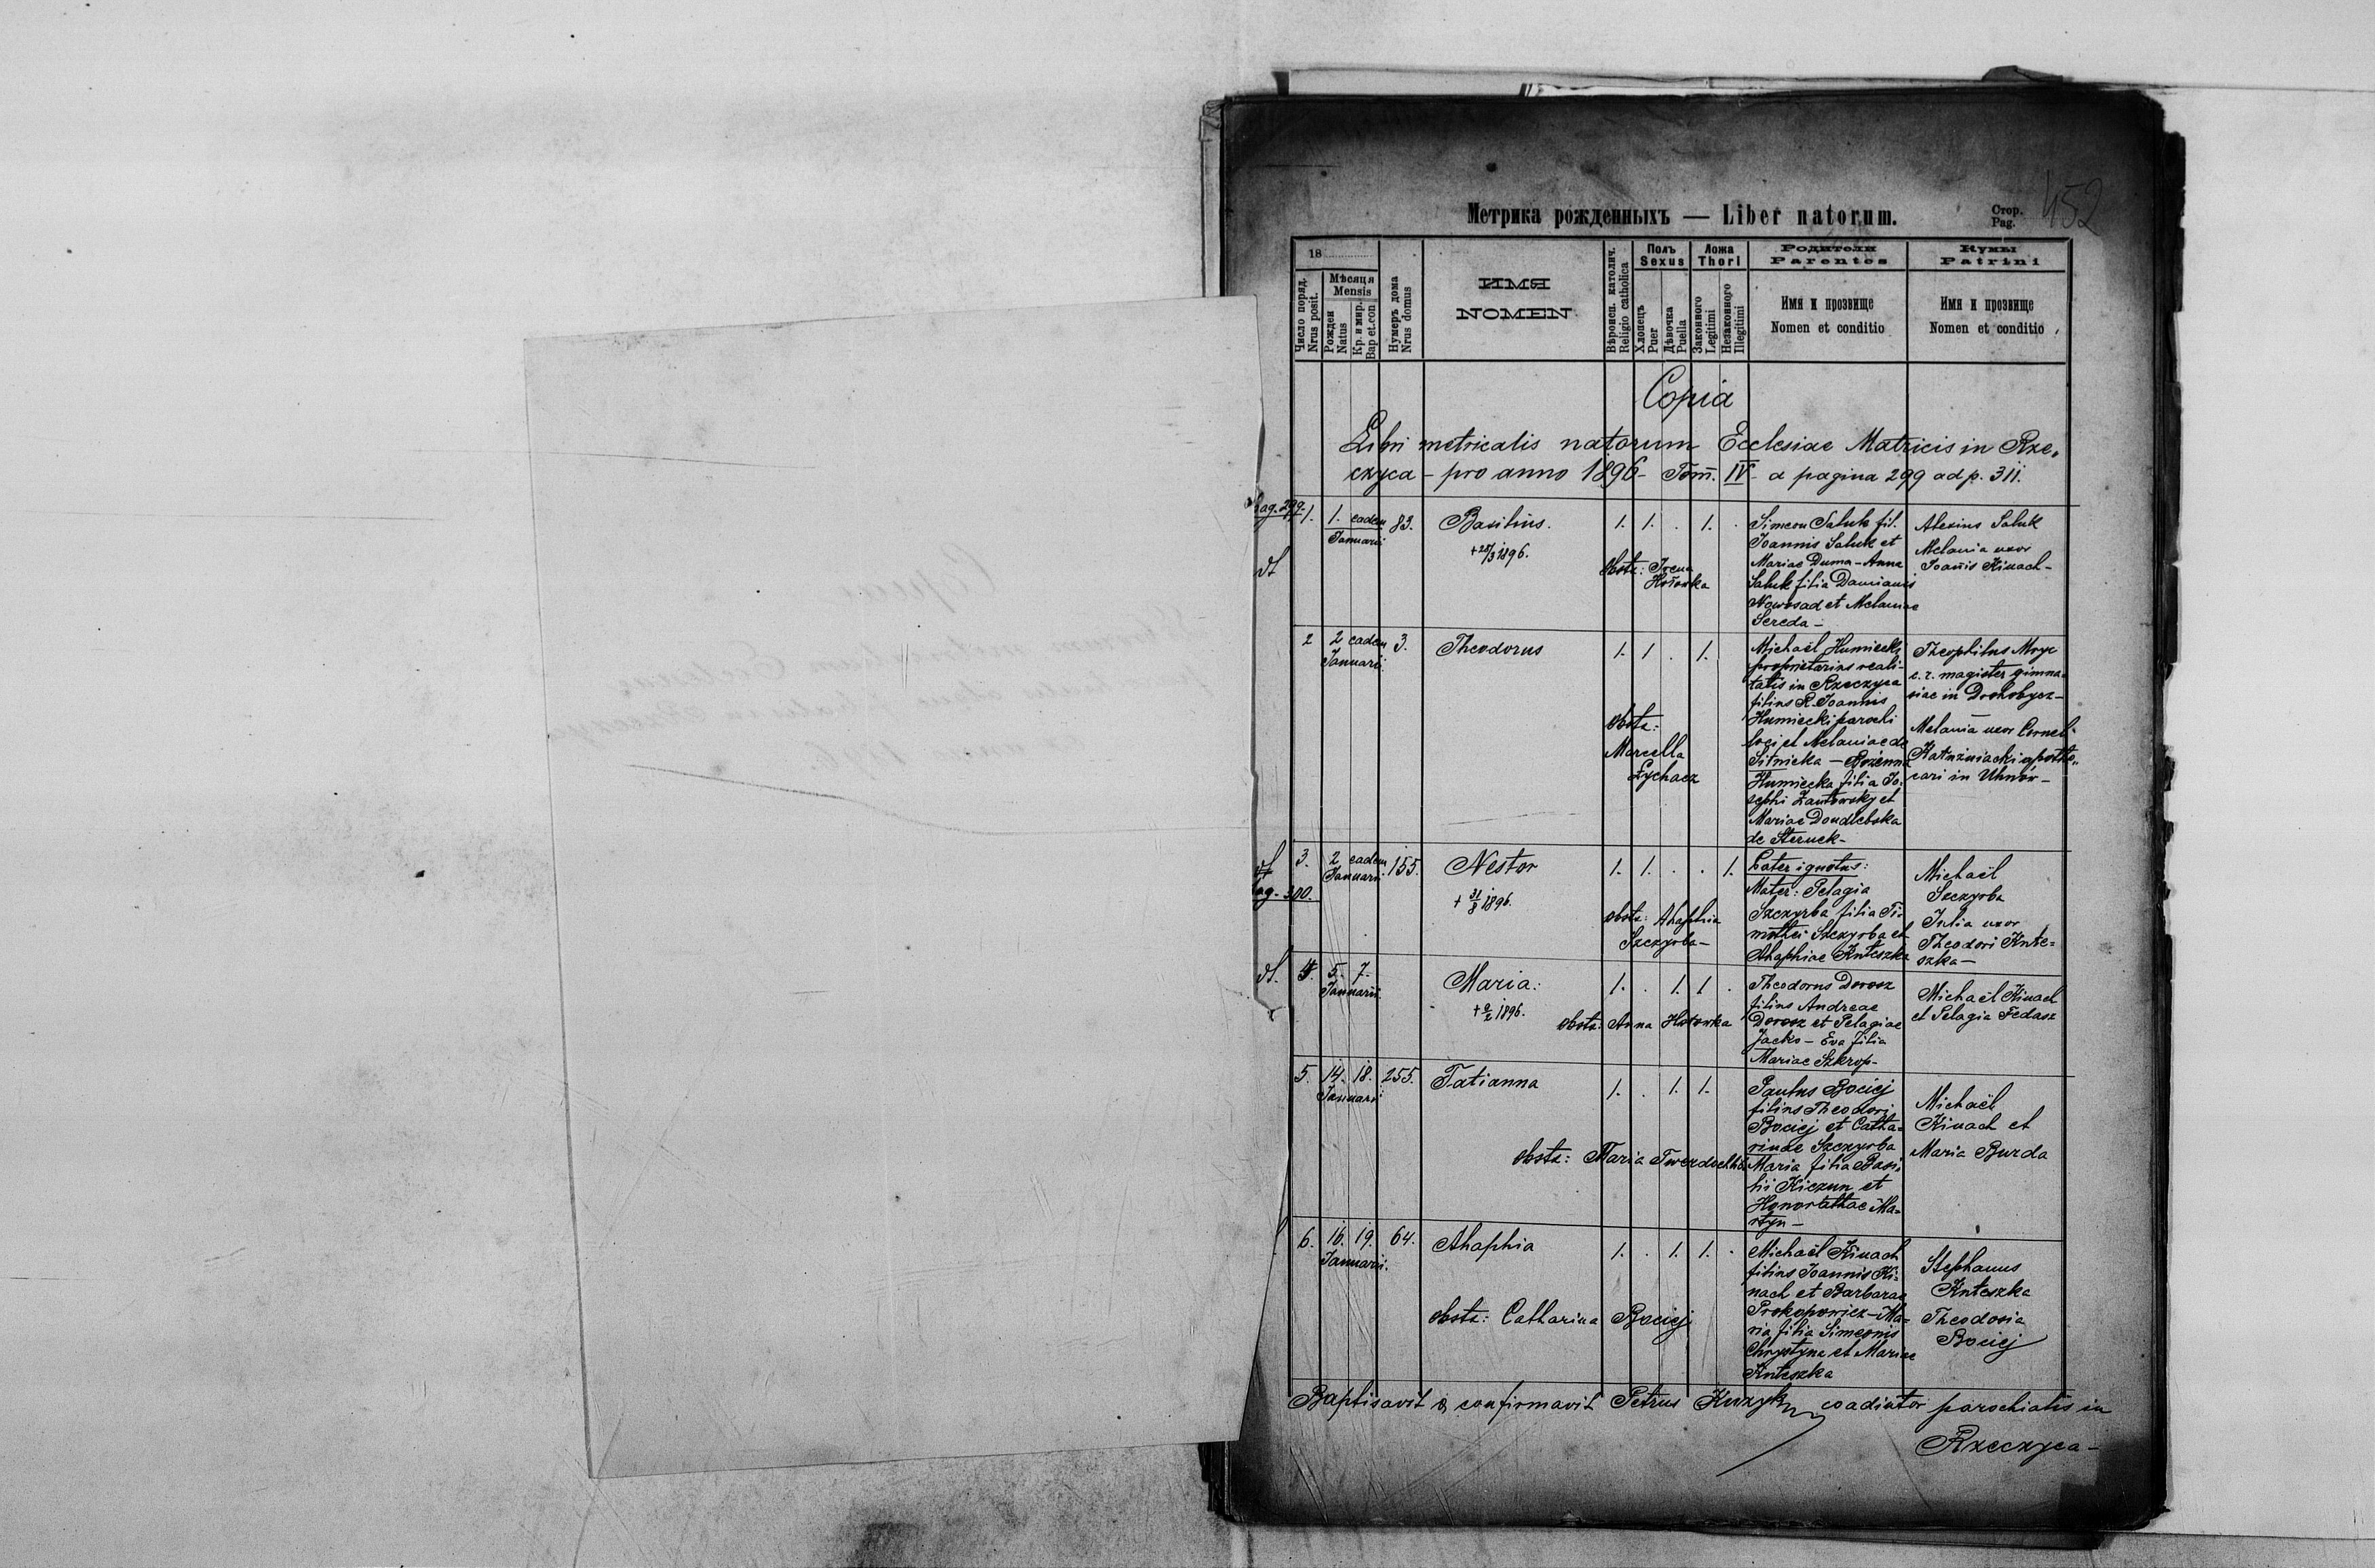 Метрика рожденныхъ — Liber natorum.
Стор.
Pag.
452
18
Число поряд.
Nrus posit.
Мѣсяця
Mensis
Рожден
Natus
Кр. и мир.
Bap et.con
Нумеръ дома
Nrus domus
ИМЯ
NOMEN
Вѣроисп. католич.
Religio catholica
Полъ
Sexus
Хлопець
Puer
Дѣвочка
Puella
Ложа
Thori
Законного
Legitimi
Незаконного
Illegitimi
Родители
Parentes
Имя и прозвище
Nomen et conditio
Кумы
Patrini
Имя и прозвище
Nomen et conditio
Copia
Libri metricalis natorum Ecclesiae Matricis in Rze„
czyca – pro anno 1896 – Tom. IV – a pagina 299 ad p. 311.
pag. 299.
1. 1. eadem 83. Basilius. 1. 1. . 1. .
Januarii
+ 28/3 1896.
obstx: Irena
Hołowka
Simeon Saluk fil.
Joannis Saluk et
Mariae Duma – Anna
Saluk filia Damianis
Nowosad et Melaniae
Sereda –
Alexius Saluk
Melania uxor
Joannis Kinach –
2 2 eadem 3. Theodorus 1. 1 . 1.
Januarii
obstx:
Marcella
Łychacz
Michaël Humiecki
proprietarius reali-
tatis in Rzeczyca
filius R. Joannis
Humiecki parochi
loci et Melaniae de
Sitnicka – Bożenna
Humiecka filia Jo-
sephi Żantowsky et
Mariae Doudlebska
de Sterneck –
Theophilus Mryc
c. r. magister gimna-
siae in Drohobycz –
Melania uxor Corneli
Kałużniacki apothe„
cari in Uhnów –
3. 2 eadem 155. Nestor 1. 1. . . 1.
Januarii
+ 31/8 1896.
pag. 300.
obstx: Ahaphia
Szczyrba –
Pater ignotus:
Mater: Pelagia
Szczyrba filia Ti-
mothei Szczyrba et
Ahaphiae Knteszka
Michaël
Szczyrba
Julia uxor
Theodori Knte=
szka –
4. 5. 7. Maria: 1. . 1. 1 .
Januarii
+ 2/2 1896.
obstx. Anna Hołowka
Theodorus Dorosz
filius Andreae
Dorosz et Pelagiae
Jacko – Eva filia
Mariae Szkrop –
Michaël Kinach
et Pelagia Fedasz
5. 14. 18. 255. Tatianna 1. . 1. 1.
Januarii
obstx: Maria Twerdochlib
Paulus Bociej
filius Theodori
Bociej et Catha-
rinae Szczyrba
Maria filia Basi-
lii Kiczun et
Honorathae Ma-
rtyn –
Michaël
Kinach et
Maria Burda
6. 16. 19. 64. Ahaphia 1. . 1. 1. .
Januarii.
obstx: Catharina Bociej
Michaël Kinach
filius Joannis Ki-
nach et Barbarae
Prokopowicz – Ma-
ria filia Simeonis
Chrystyna et Mariae
Knteszka
Stephanus
Knteszka
Theodosia
Bociej
Baptisavit & confirmavit Petrus Kuzyk coadiutor parochialis in
Rzeczyca –